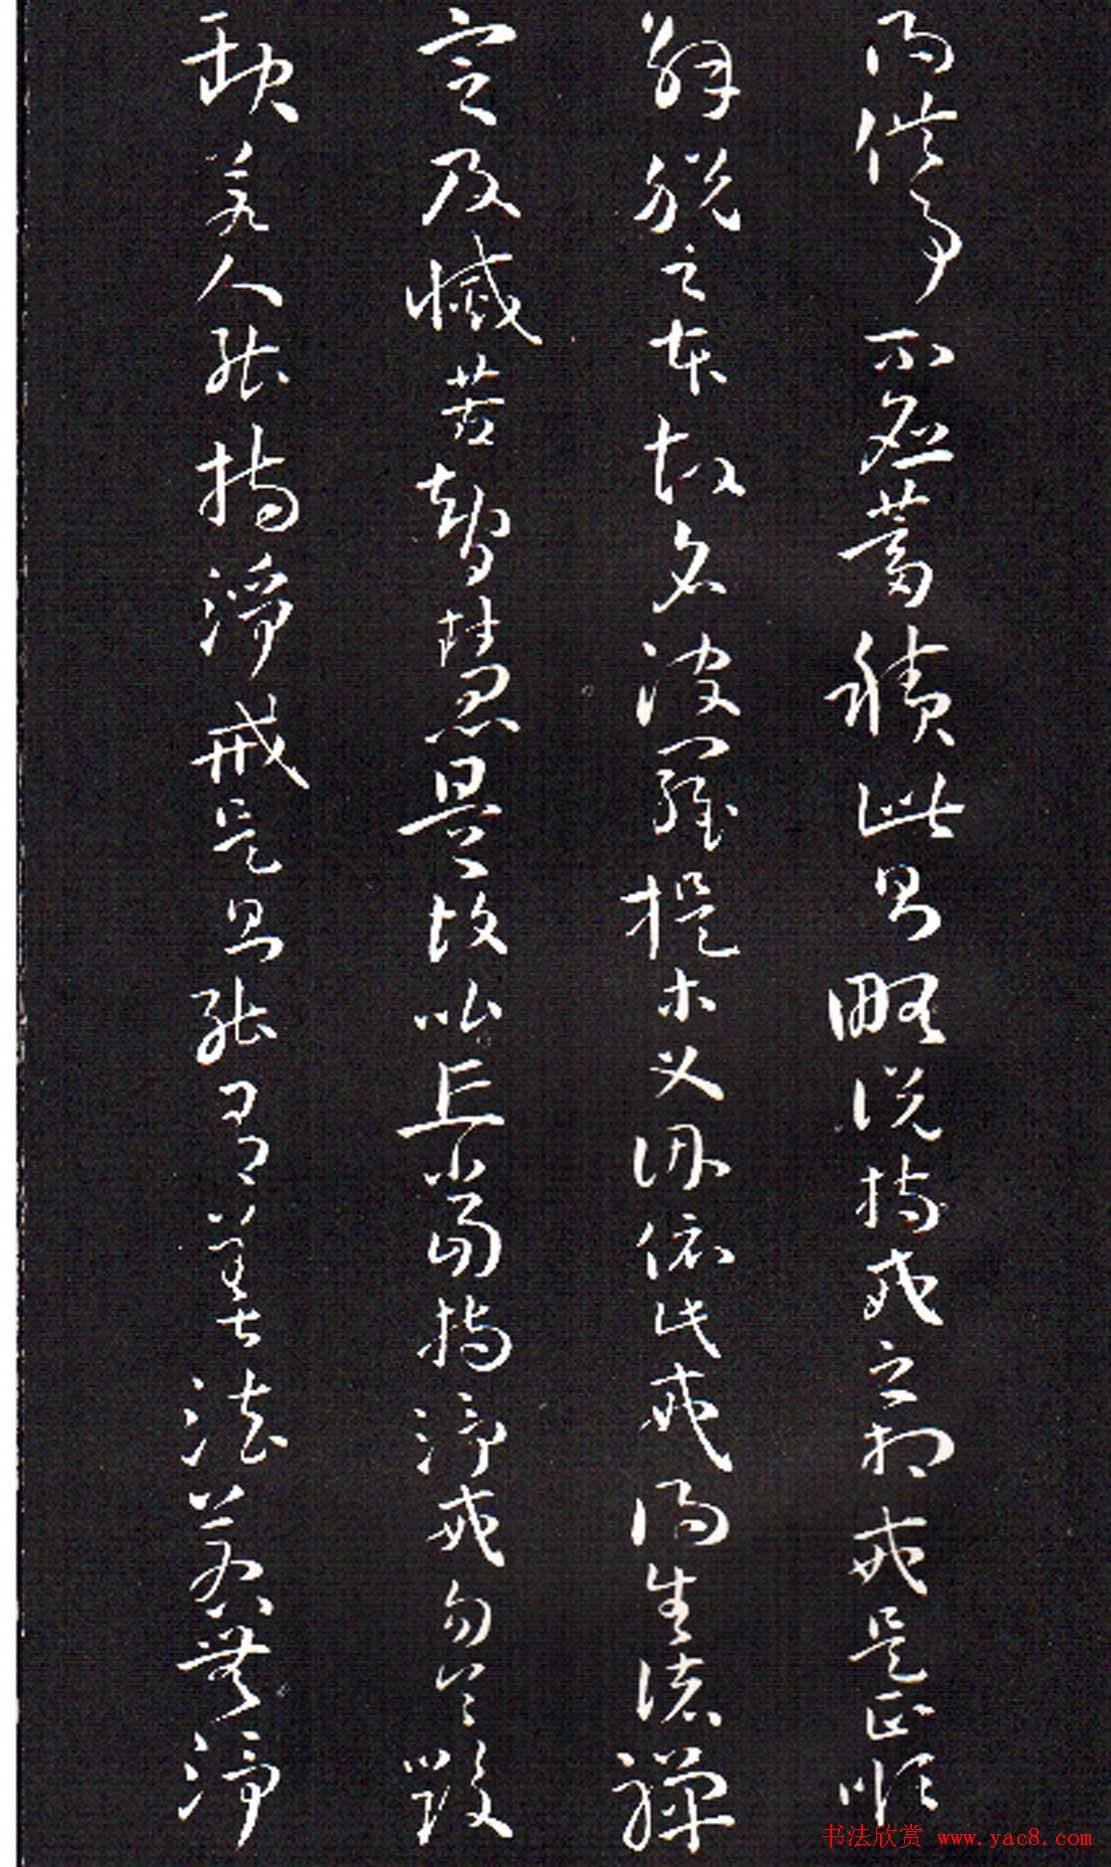 得供事不應蓄積此則略說持戒之相戒是正順
解脫之本故名波羅提木叉因依此戒得生諸禪
定及滅苦智慧是故比丘當持淨戒勿令毀
缺若人能持淨戒是則能有善法若無淨
书法欣赏 www.yac8.com